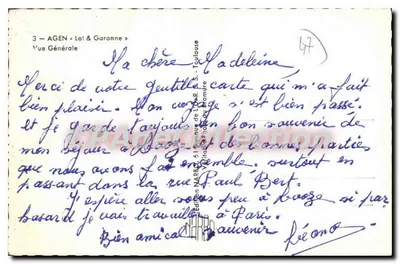 3 — AGEN « Lot & Garonne »
Vue Générale
47
Ma chère Madeleine,
Merci de votre gentille carte qui m'a fait
bien plaisir. Mon voyage s'est bien passé.
et je garde toujours un bon souvenir de
mon séjour à et de bonnes parties
que nous avons fait ensemble. surtout en
passant dans la rue Paul Bert.
J'espère aller sous peu à si par
hasard je vais travailler à Paris.
Bien amical souvenir